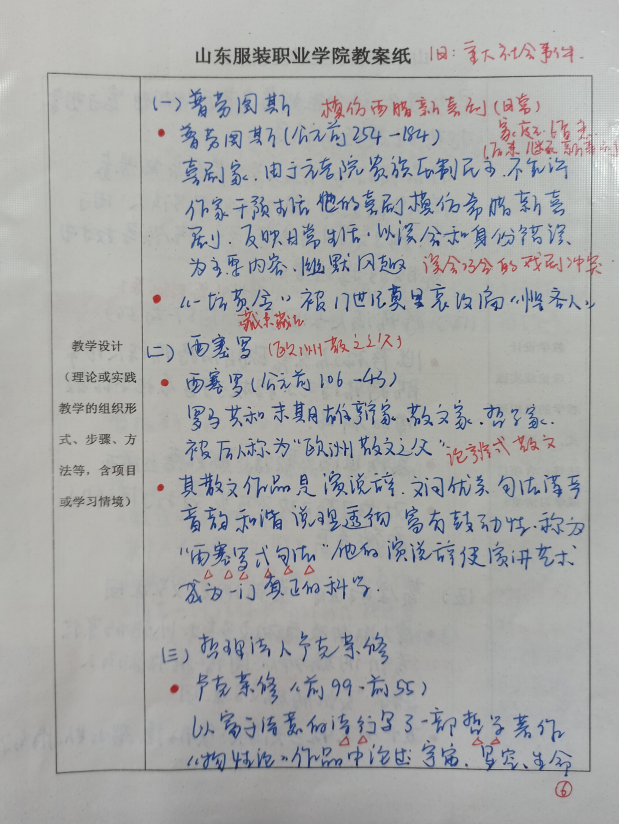 山东服装职业学院教案纸 旧：重大社会事件.
(一) 普劳图斯 模仿西腊新喜剧(日常)
家庭
• 普劳图斯(公元前254-184)
喜剧家,由于元老院贵族压制民主,不允许
作家干预生活.他的喜剧模仿希腊新喜
剧.反映日常生活,以误会和身份错误
为主要内容.幽默风趣 误会巧合的戏剧冲突
• "一坛黄金" 被17世纪莫里哀改编《悭吝人》
藏来藏去
教学设计
(理论或实践
教学的组织形
式、步骤、方
法等,含项目
或学习情境)
(二) 西塞罗 (欧州散文之父)
• 西塞罗(公元前106-43)
罗马共和末期雄辩家.散文家.哲学家.
被后人称为"欧州散文之父" 论辩式散文
• 其散文作品是演说辞.文词优美 句法谨严
音韵和谐 说理透彻 富有鼓动性.称为
"西塞罗式句法" 他的演说辞使演讲艺术
成为一门真正的科学.
(三) 哲理诗人卢克莱修
• 卢克莱修 (前99-前55)
以富于诗意的诗行写了一部哲学著作
《物性论》作品中论述宇宙、星空、生命
⑥